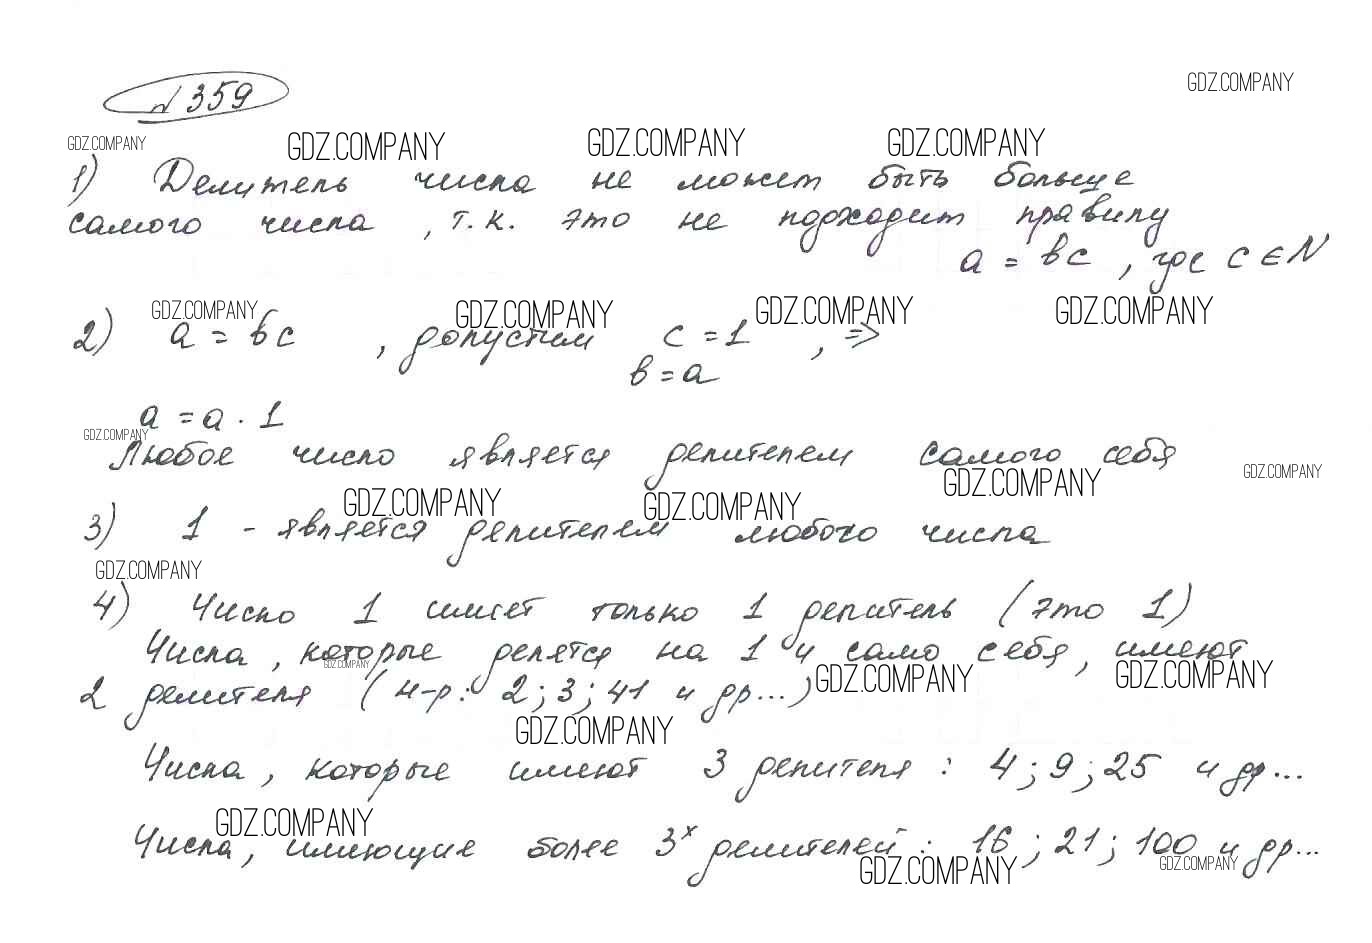 №359
GDZ.COMPANY
GDZ.COMPANY GDZ.COMPANY GDZ.COMPANY GDZ.COMPANY
1) Делитель числа не может быть больше
самого числа, т.к. это не подходит правилу
a = bc, где c ∈ N
GDZ.COMPANY GDZ.COMPANY GDZ.COMPANY GDZ.COMPANY
2) a = bc, допустим c = 1, ⇒
b = a
a = a · 1
GDZ.COMPANY
Любое число является делителем самого себя
GDZ.COMPANY GDZ.COMPANY GDZ.COMPANY GDZ.COMPANY
3) 1 - является делителем любого числа
GDZ.COMPANY
4) Число 1 имеет только 1 делитель (это 1)
Числа, которые делятся на 1 и само себя, имеют
GDZ.COMPANY GDZ.COMPANY GDZ.COMPANY
2 делителя (н-р: 2; 3; 41 и др...)
GDZ.COMPANY
Числа, которые имеют 3 делителя: 4; 9; 25 и др...
GDZ.COMPANY
Числа, имеющие более 3х делителей: 16; 21; 100 и др...
GDZ.COMPANY GDZ.COMPANY